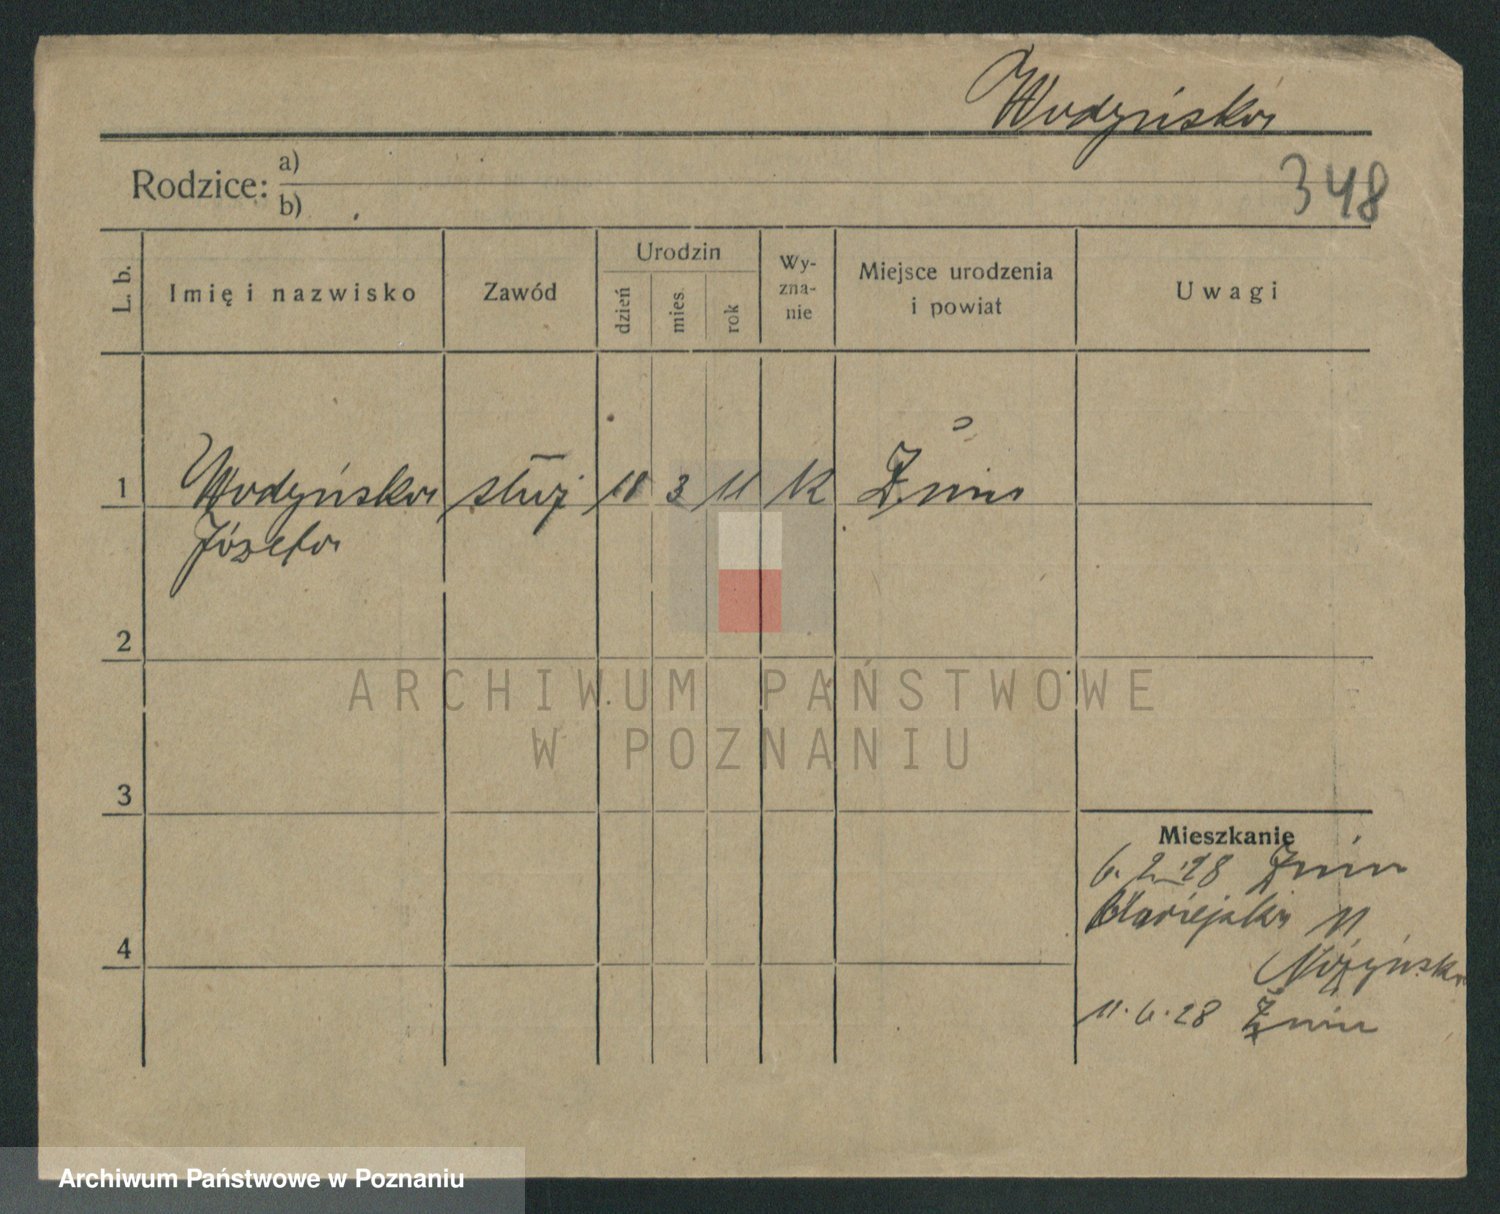 Wodyńska
348
Rodzice: a)
b)
L. b.
Imię i nazwisko
Zawód
Urodzin
dzień
mies.
rok
Wy-
zna-
nie
Miejsce urodzenia
i powiat
Uwagi
1 Wodyńska służ 3 11 K Żnin
Józefa
2
3
4
Mieszkanie
6. 2. 28 Żnin
11
11. 6. 28 Żnin
ARCHIWUM PAŃSTWOWE
W POZNANIU
Archiwum Państwowe w Poznaniu